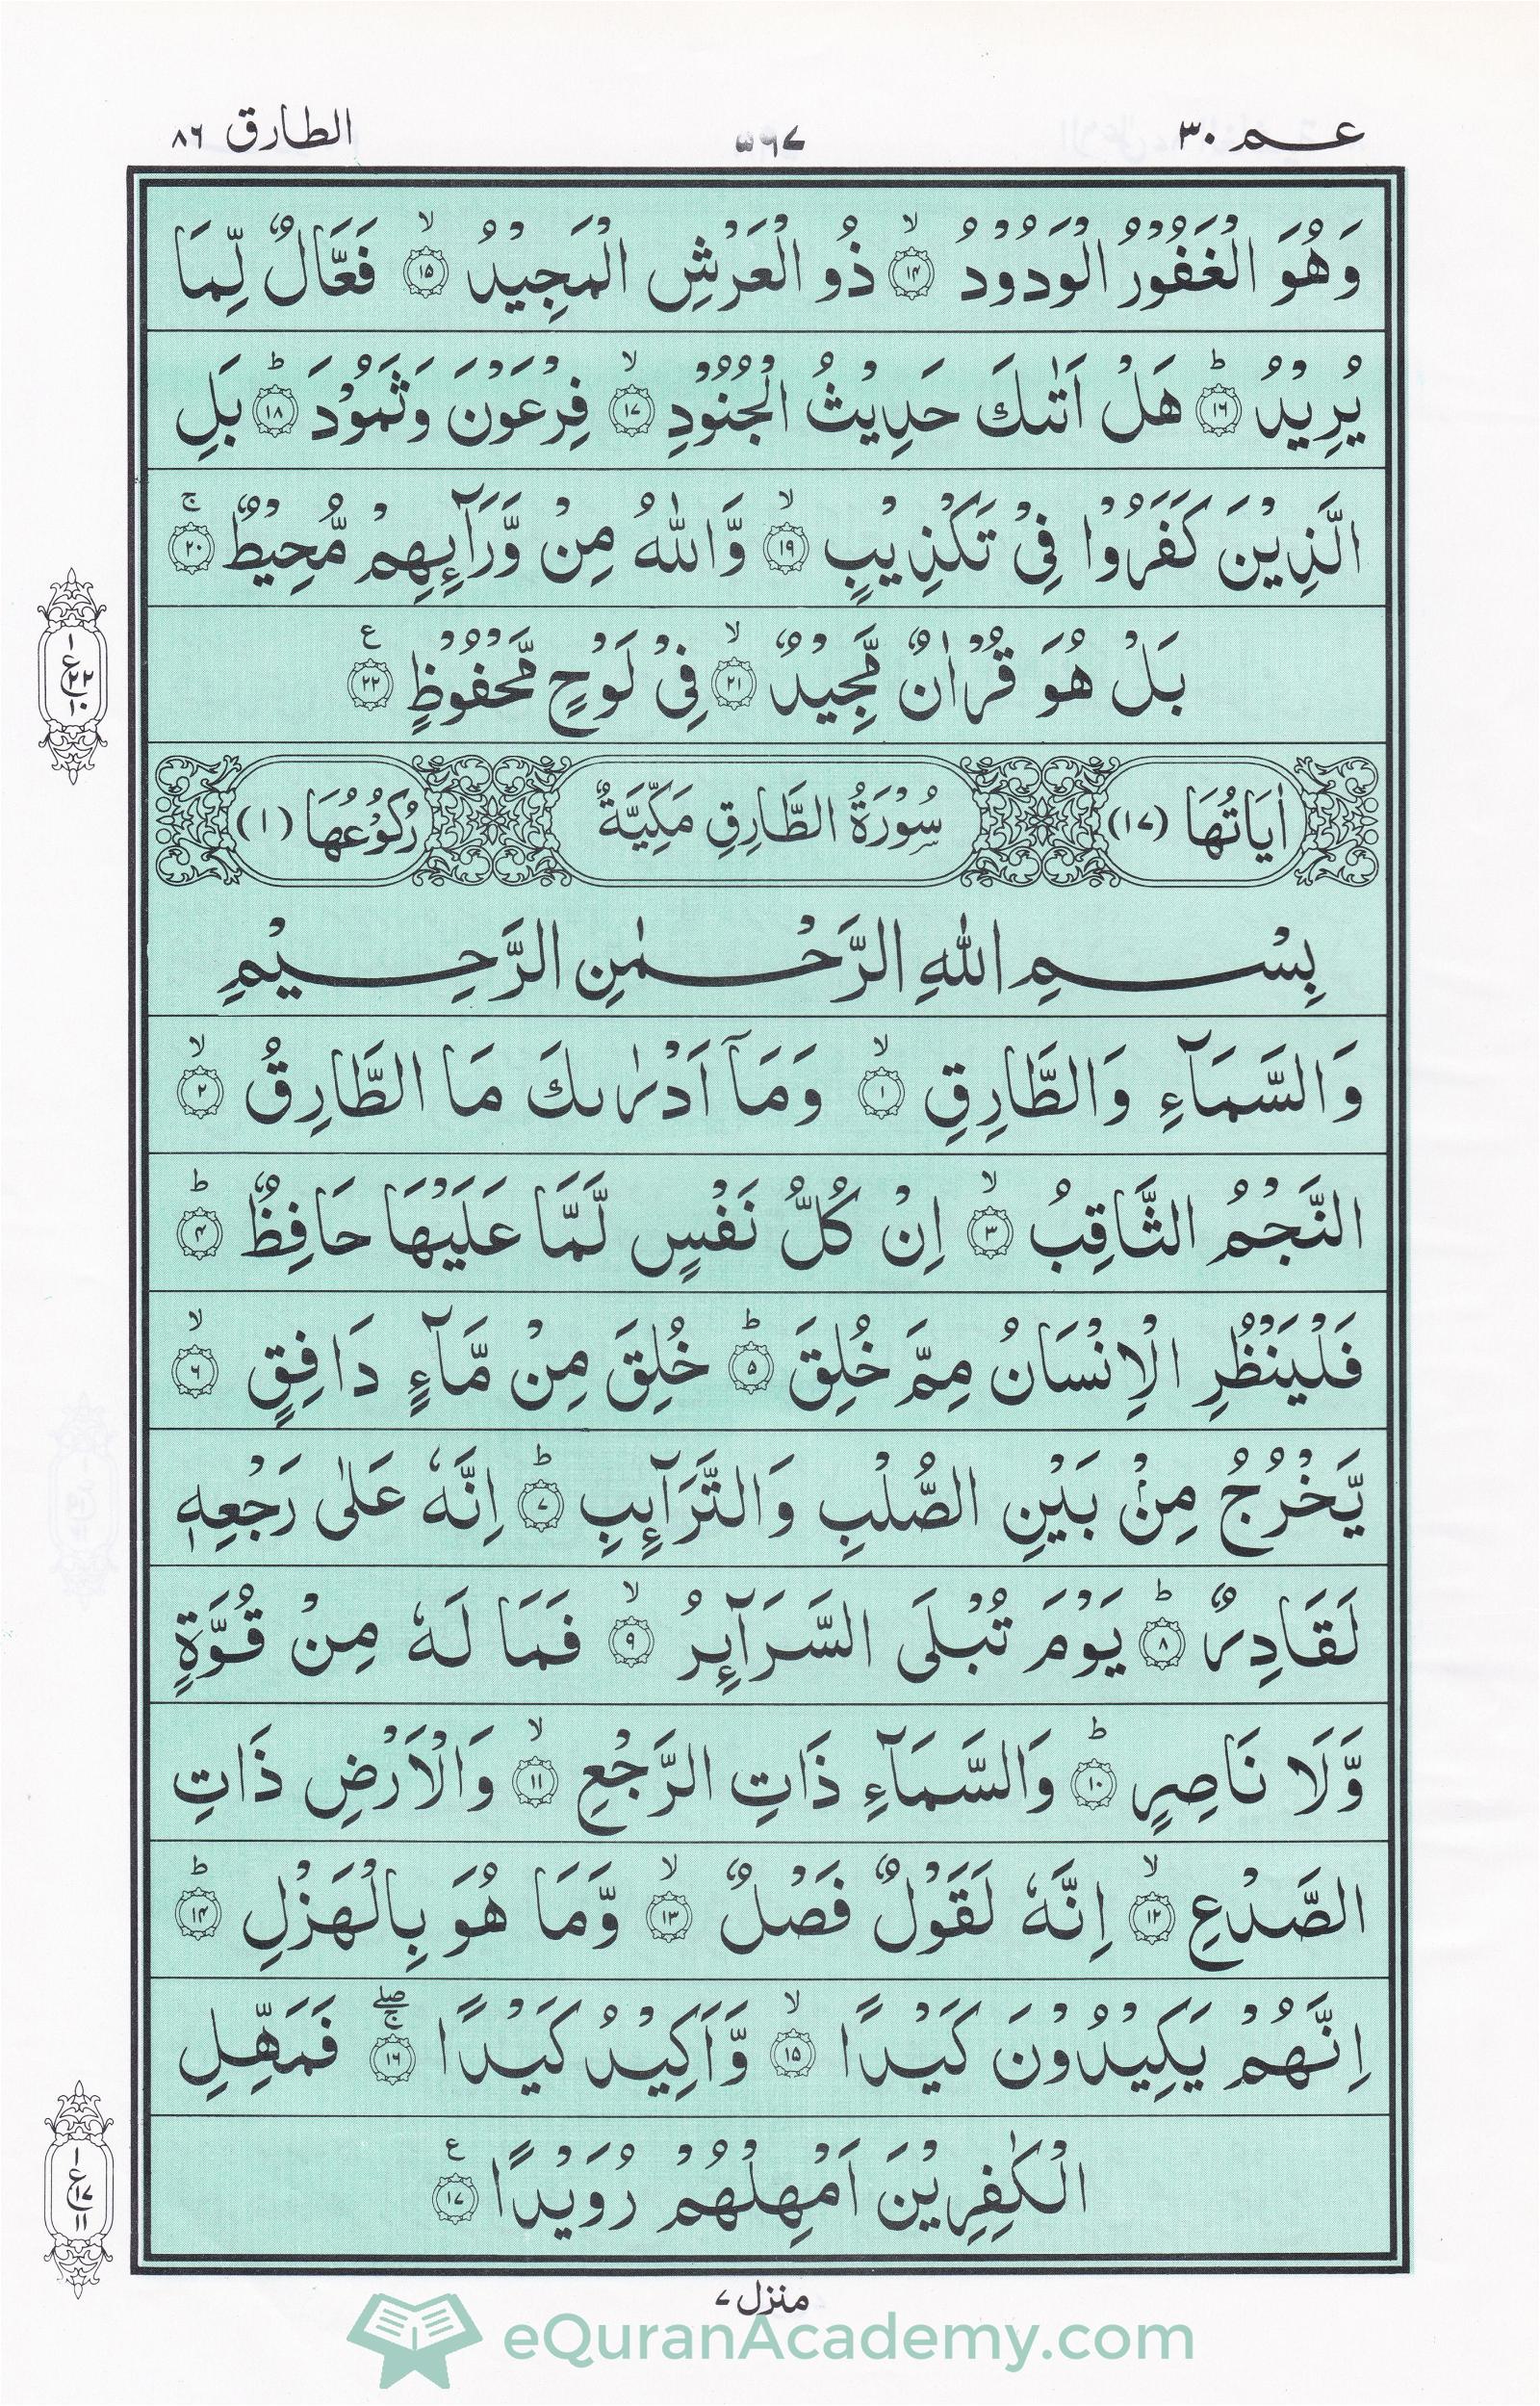 عم ٣٠
٥٦٧
الطارق ٨٦
وَهُوَ الْغَفُوْرُ الْوَدُوْدُ ۙ﴿۱۴﴾ ذُو الْعَرْشِ الْمَجِيْدُ ۙ﴿۱۵﴾ فَعَّالٌ لِّمَا
يُرِيْدُ ؕ﴿۱۶﴾ هَلْ اَتٰىكَ حَدِيْثُ الْجُنُوْدِ ۙ﴿۱۷﴾ فِرْعَوْنَ وَثَمُوْدَ ؕ﴿۱۸﴾ بَلِ
الَّذِيْنَ كَفَرُوْا فِيْ تَكْذِيْبٍ ۙ﴿۱۹﴾ وَّاللّٰهُ مِنْ وَّرَآئِهِمْ مُّحِيْطٌ ۚ﴿۲۰﴾
بَلْ هُوَ قُرْاٰنٌ مَّجِيْدٌ ۙ﴿۲۱﴾ فِيْ لَوْحٍ مَّحْفُوْظٍ ﴿۲۲﴾ ع
١
ع
٢٢
١٠
اٰيَاتُهَا (١٧) سُوْرَةُ الطَّارِقِ مَكِّيَّةٌ رُكُوْعُهَا (١)
بِسْمِ اللّٰهِ الرَّحْمٰنِ الرَّحِيْمِ
وَالسَّمَآءِ وَالطَّارِقِ ۙ﴿۱﴾ وَمَاۤ اَدْرٰىكَ مَا الطَّارِقُ ۙ﴿۲﴾
النَّجْمُ الثَّاقِبُ ۙ﴿۳﴾ اِنْ كُلُّ نَفْسٍ لَّمَّا عَلَيْهَا حَافِظٌ ؕ﴿۴﴾
فَلْيَنْظُرِ الْاِنْسَانُ مِمَّ خُلِقَ ؕ﴿۵﴾ خُلِقَ مِنْ مَّآءٍ دَافِقٍ ۙ﴿۶﴾
يَّخْرُجُ مِنْۢ بَيْنِ الصُّلْبِ وَالتَّرَآئِبِ ؕ﴿۷﴾ اِنَّهٗ عَلٰى رَجْعِهٖ
لَقَادِرٌ ؕ﴿۸﴾ يَوْمَ تُبْلَى السَّرَآئِرُ ۙ﴿۹﴾ فَمَا لَهٗ مِنْ قُوَّةٍ
وَّلَا نَاصِرٍ ؕ﴿۱۰﴾ وَالسَّمَآءِ ذَاتِ الرَّجْعِ ۙ﴿۱۱﴾ وَالْاَرْضِ ذَاتِ
الصَّدْعِ ۙ﴿۱۲﴾ اِنَّهٗ لَقَوْلٌ فَصْلٌ ۙ﴿۱۳﴾ وَّمَا هُوَ بِالْهَزْلِ ؕ﴿۱۴﴾
اِنَّهُمْ يَكِيْدُوْنَ كَيْدًا ۙ﴿۱۵﴾ وَّاَكِيْدُ كَيْدًا ۚۖ﴿۱۶﴾ فَمَهِّلِ
الْكٰفِرِيْنَ اَمْهِلْهُمْ رُوَيْدًا ﴿۱۷﴾ ع
١
ع
١٧
١١
منزل ٧
eQuranAcademy.com